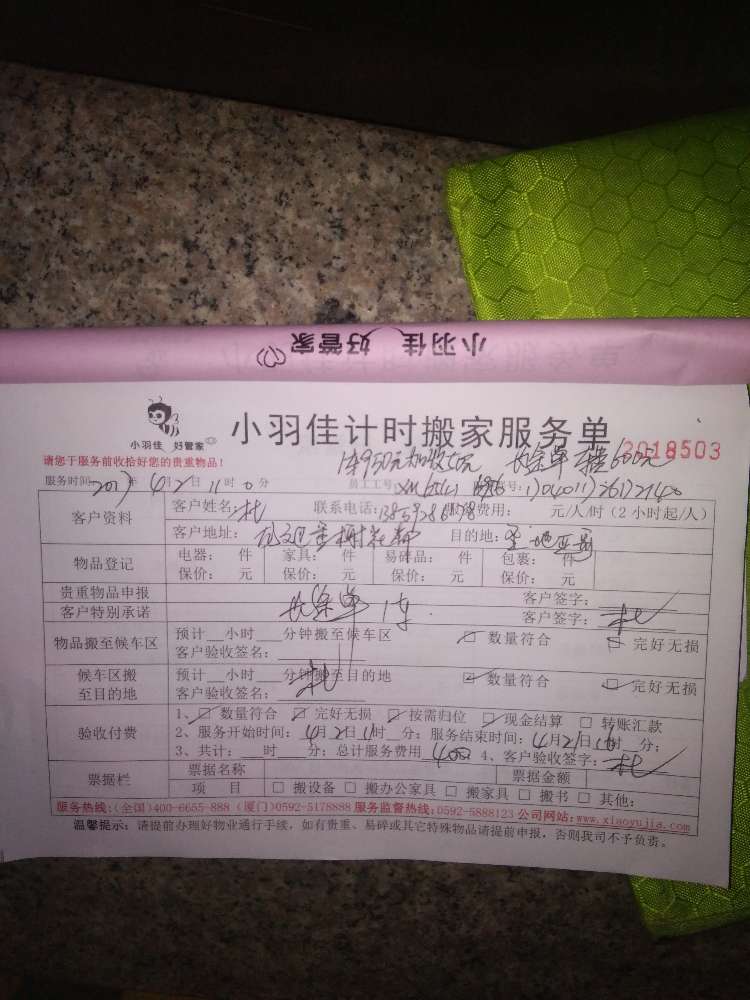 小羽佳 好管家
小羽佳 好管家
小羽佳计时搬家服务单
2018503
请您于服务前收拾好您的贵重物品!
服务时间: 2017年 4月2日 11时 0分 员工工号:
客户资料
客户姓名: 杜 联系电话: 费用: 元/人/时(2小时起/人)
客户地址: 目的地:
物品登记
电器: 件 家具: 件 易碎品: 件 包裹: 件
保价: 元 保价: 元 保价: 元 保价: 元
贵重物品申报 客户签字:
客户特别承诺 长途单1车. 客户签字: 杜
物品搬至候车区
预计__小时__分钟搬至候车区 ☑ 数量符合 ☑ 完好无损
客户验收签名:
候车区搬至目的地
预计__小时__分钟搬至目的地 ☑ 数量符合 ☑ 完好无损
客户验收签名: 杜
验收付费
1、☑ 数量符合 ☑ 完好无损 ☑ 按需归位 ☑ 现金结算 □ 转账汇款
2、服务开始时间: 4月2日11时__分; 服务结束时间: 4月2日 时__分;
3、共计:__时__分; 总计服务费用 400 4、客户验收签字: 杜
票据栏
票据名称 票据金额
项 目 □ 搬设备 □ 搬办公家具 □ 搬家具 □ 搬书 □ 其他:
服务热线:(全国)400-6655-888 (厦门)0592-5178888 服务监督热线:0592-5888123 公司网站:www.xiaoyujia.com
温馨提示: 请提前办理好物业通行手续, 如有贵重、易碎或其它特殊物品请提前申报, 否则我司不予负责。